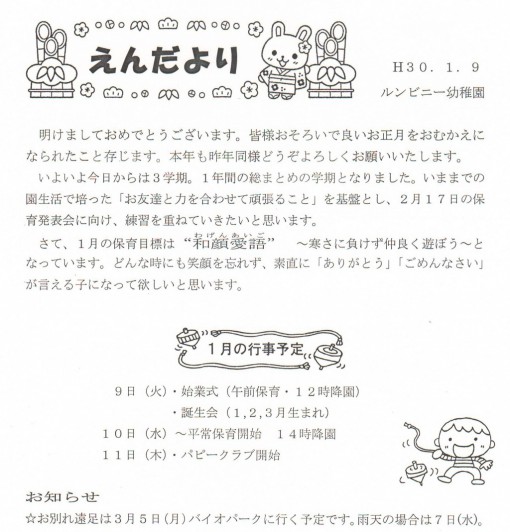 えんだより
H30．1．9
ルンビニー幼稚園
明けましておめでとうございます。皆様おそろいで良いお正月をおむかえに
なられたこと存じます。本年も昨年同様どうぞよろしくお願いいたします。
いよいよ今日からは３学期。１年間の総まとめの学期となりました。いままでの
園生活で培った「お友達と力を合わせて頑張ること」を基盤とし、２月１７日の保
育発表会に向け、練習を重ねていきたいと思います。
わげんあいご
さて、１月の保育目標は “和顔愛語” ～寒さに負けず仲良く遊ぼう～と
なっています。どんな時にも笑顔を忘れず、素直に「ありがとう」「ごめんなさい」
が言える子になって欲しいと思います。
１月の行事予定
９日（火）・始業式（午前保育・１２時降園）
・誕生会（1,2,3月生まれ）
１０日（水）～平常保育開始　１４時降園
１１日（木）・パピークラブ開始
お知らせ
☆お別れ遠足は３月５日(月)バイオパークに行く予定です。雨天の場合は７日(水)。